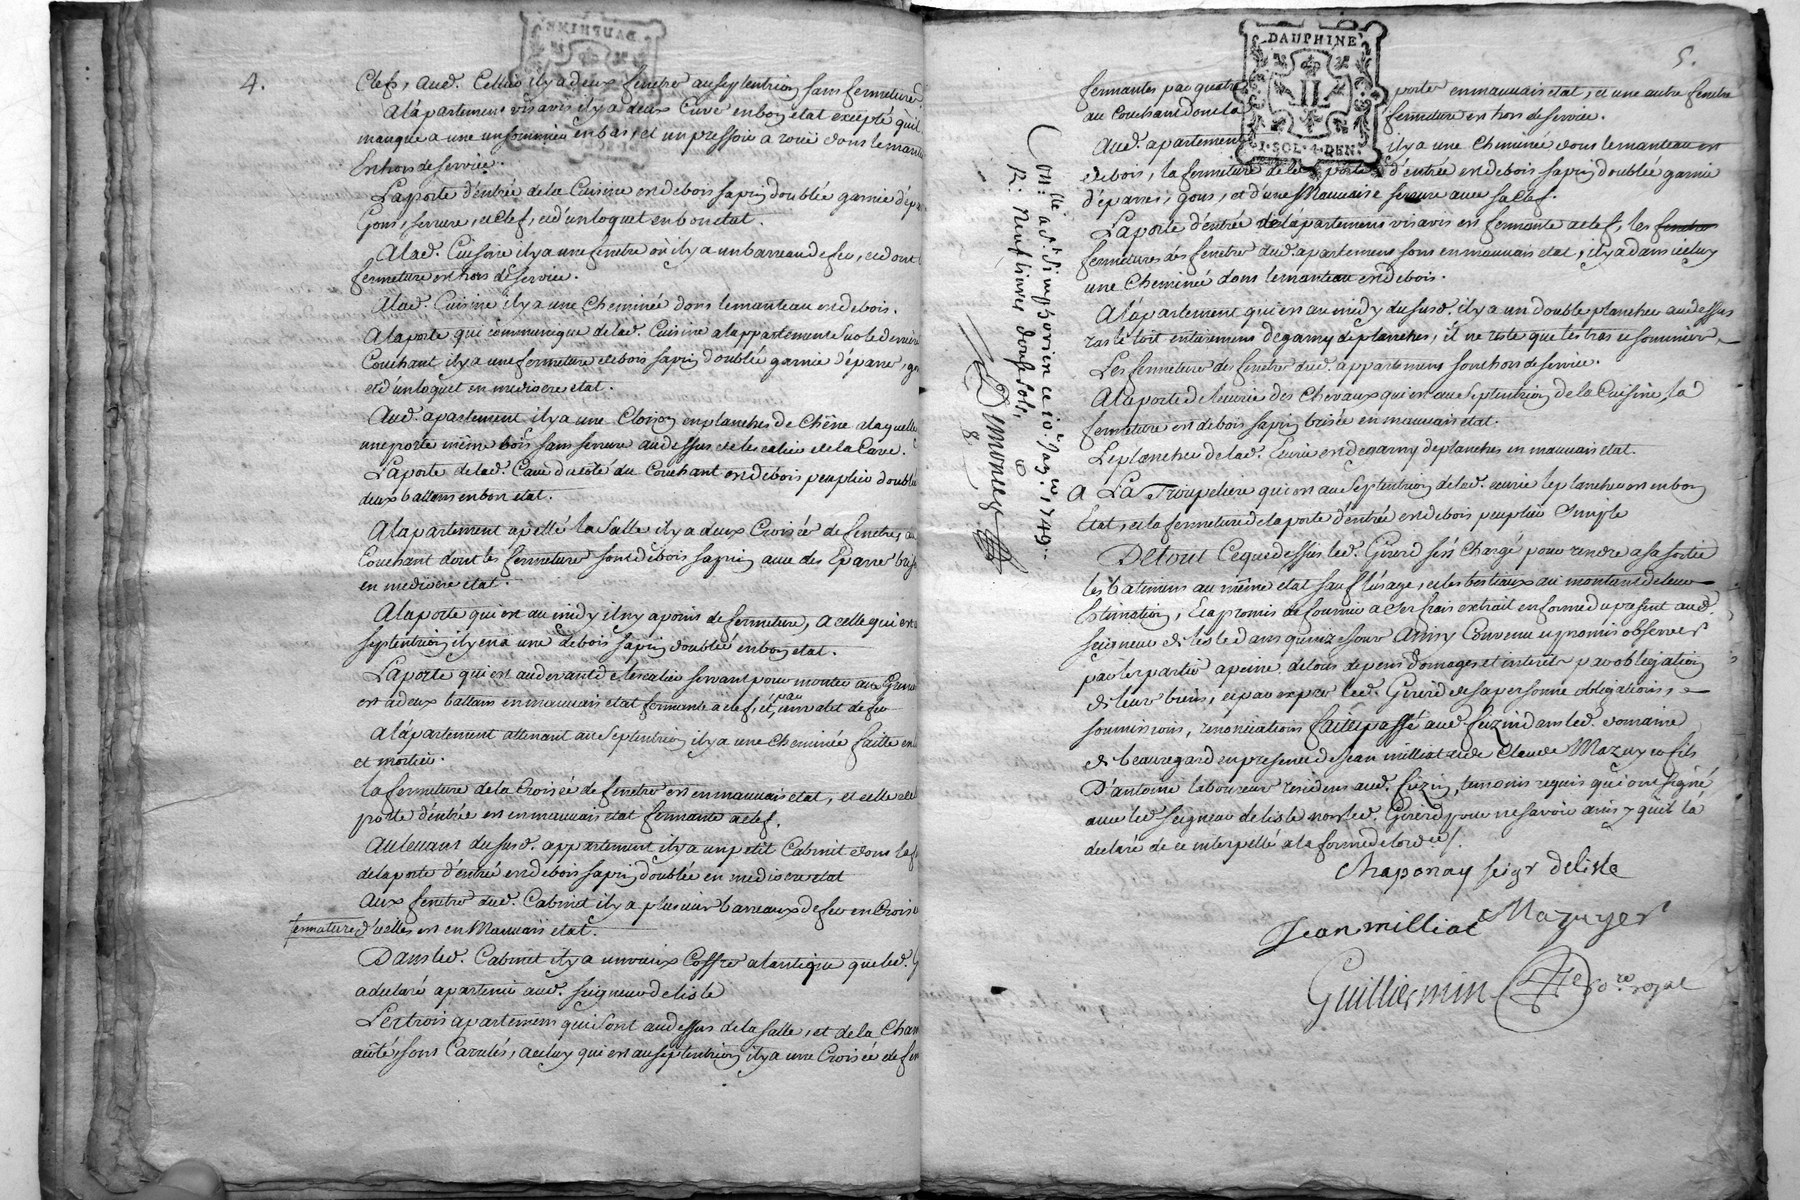 4.
Clef, aud. Cellier il y a deux fenetre au septentrion sans fermeture
A l'apartement vis avis il y a deux Cuve en bon etat excepté qu'il
manque a une un sommier en bas, et un pressoir a roüe dont le mant
En hors de service.
La porte d'entrée de la Cuisine est de bois sapin doublé garnie d'épa
Gons, serrure, et clef, et d'un loquet en bon etat.
A lad. Cuisine il y a une fenetre où il y a un barreau de fer, et dont
fermeture est hors de service.
A lad. Cuisine il y a une Cheminée dont le manteau est de bois.
A la porte qui communique de lad. Cuisine a l'appartement sur le derriere
Couchant il y a une fermeture de bois sapin doublée garnie d'éparre, g
et d'un loquet en mediocre etat.
Aud. apartement il y a une Cloison en planches de Chêne a laquelle
une porte même bois sans serrure au dessus de l'escalier de la Cave.
La porte de lad. Cave du coté du Couchant est de bois peuplier double
deux battans en bon etat.
A l'apartement apellé la Salle il y a deux Croisée de fenetre, au
Couchant dont les fermeture sont de bois sapin avec des Eparre bris
en mediocre etat.
A la porte qui est au midy il n'y a point de fermeture, a celle qui est a
septentrion il y en a une de bois sapin doublée en bon etat.
La porte qui est au devant de l'escalier servant pour monter aux Gren
est a deux battans en mauvais etat fermante a clef, et par un valet de fer
A l'apartement attenant au Septentrion il y a une Cheminée faitte en
et mortier.
La fermeture de la Croisée de fenetre est en mauvais etat, et celle de l
porte d'entrée est en mauvais etat fermante a clef.
Au levant du susd. appartement il y a un petit Cabinet dont la f
de la porte d'entrée est de bois sapin doublée en mediocre etat
Aux fenetre dud. Cabinet il y a plusieur barreaux de fer en Crois
fermature d'icelles est en Mauvais etat.
Dans led. Cabinet il y a un vieux Coffre a l'antique que led. G
a declaré apartenir aud. Seigneur de lisle
Les trois apartemens qui sont au dessus de la Salle, et de la Cham
a côté, sont Carrelés, a celuy qui est au septentrion il y a une Croisée de fen
5.
DAUPHINE
1 · SOL · 4 · DEN
fermantes par quatre porte en mauvais etat, et une autre fenetre
au Couchant dont la fermeture est hors de service.
Aud. apartement il y a une Cheminée dont le manteau est
de bois, la fermeture de la porte d'entrée est de bois sapin doublée garnie
d'éparres, gons, et d'une Mauvaise serrure avec sa clef.
La porte d'entrée de l'apartement vis avis est fermante a clef, les fenetre
fermetures des fenetre dud. apartement sont en mauvais etat, il y a dans icelluy
une Cheminée dont le manteau est de bois.
A l'apartement qui est au midy du susd. il y a un double plancher au dessus
ras le toit entierement dégarny de planches, il ne reste que les tras et sommier
Les fermeture de fenetre dud. appartement sont hors de service.
A la porte de l'ecurie des Chevaux qui est au Septentrion de la Cuisine, la
fermeture est de bois sapin brisée en mauvais etat.
Le plancher de lad. Ecurie est degarny de planches en mauvais etat.
A La Troupeliere qui est au Septentrion de lad. ecurie le plancher est en bon
Etat, et la fermeture de la porte d'entrée est de bois peuplier Simple
De tout Ce que dessus led. Girerd s'est Chargé pour rendre a sa sortie
les batimens au même etat sauf l'usage, et les bestiaux au montant de leur
Estimation, Et a promis de fournir a ses frais extrait en forme du present aud.
seigneur de lisle dans quinze jour Ainsy Convenu et promis observer
par les partie a peine de tous depens domages et interêts par obligation
de leur biens, et par exprer led. Girerd de sa personne obligations, et
soumissions, renonciations fait et passé aud. fezin dans led. domaine
de beauregard en presence de Jean milliat et de Claude Mazuyer fils
D'antoine laboureur residens aud. fezin, temoins requis qui ont signé
avec led. Seigneur de lisle non led. Girerd pour ne savoir ainsy qu'il l'a
declaré de ce interpellé a la forme de lord.ce/.
Chaponay Seigr delisle
Jean milliat Mazuyer
Guilliermin No.re royal
Con.llé a St. Simphorien ce 10.e Jan.er 1749..
R: Neuf livres douse sols,